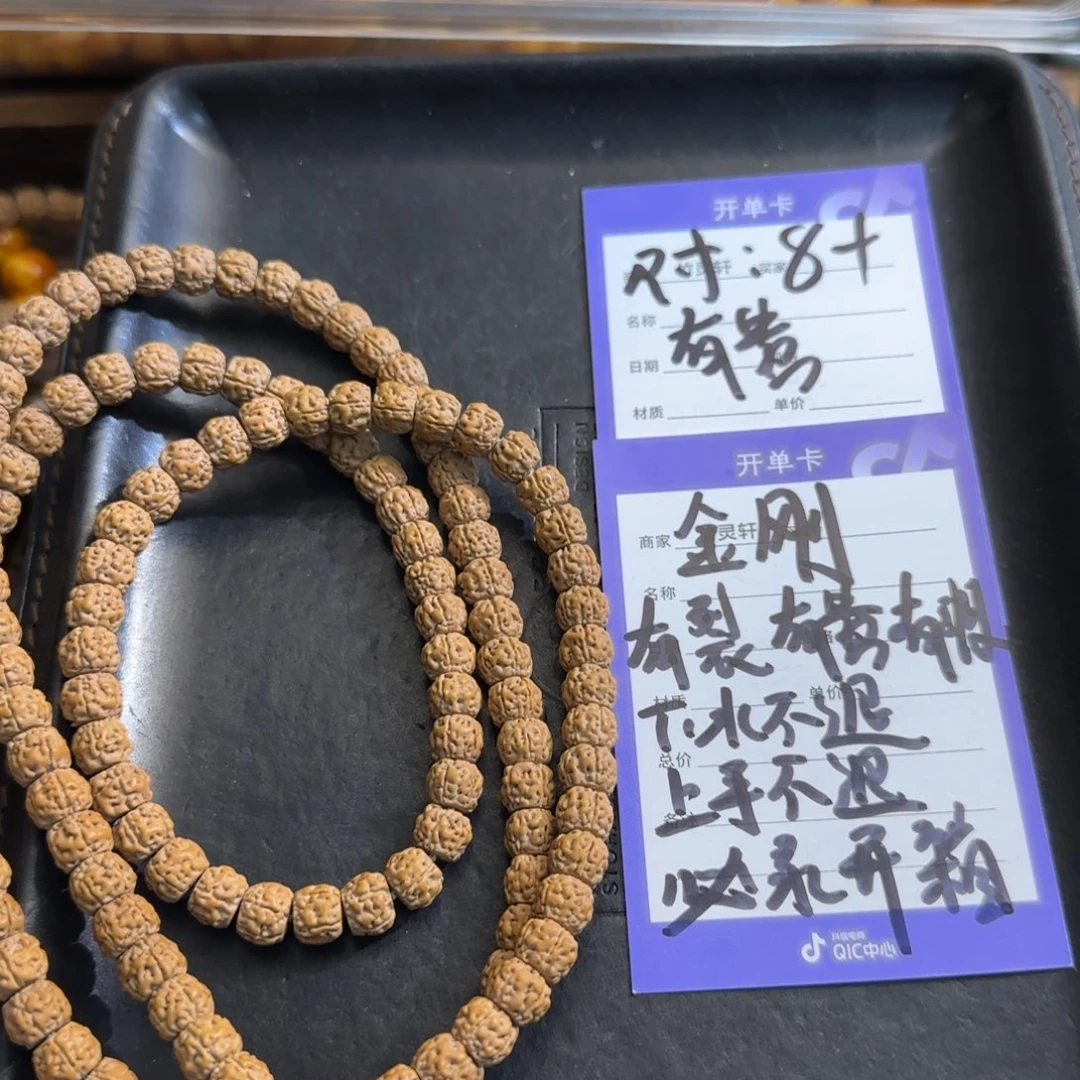 开单卡
尺寸:8+
买家
名称
有
日期
材质 单价
开单卡
商家 灵轩
金刚
名称
有裂 有 有
材质 单价
下水不退
总价
上手不退
必录开箱
抖音电商
QIC中心
DESIGN